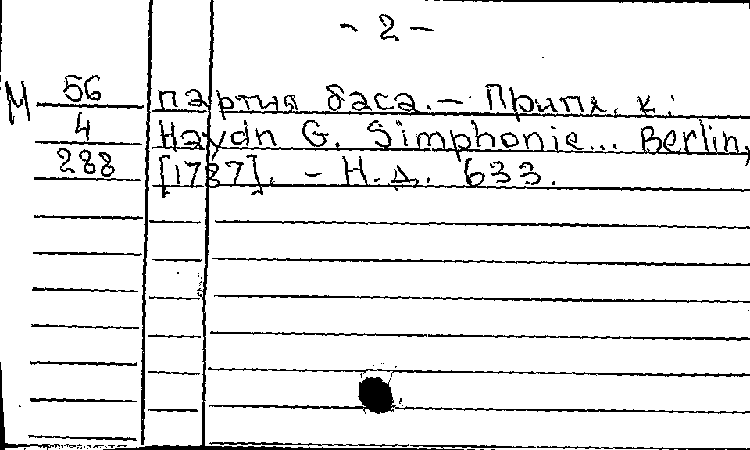 - 2 -
М 56 партия баса. - Припл. к:
4 Haydn G. Simphonie... Berlin,
288 [1787]. - Н.д. 633.